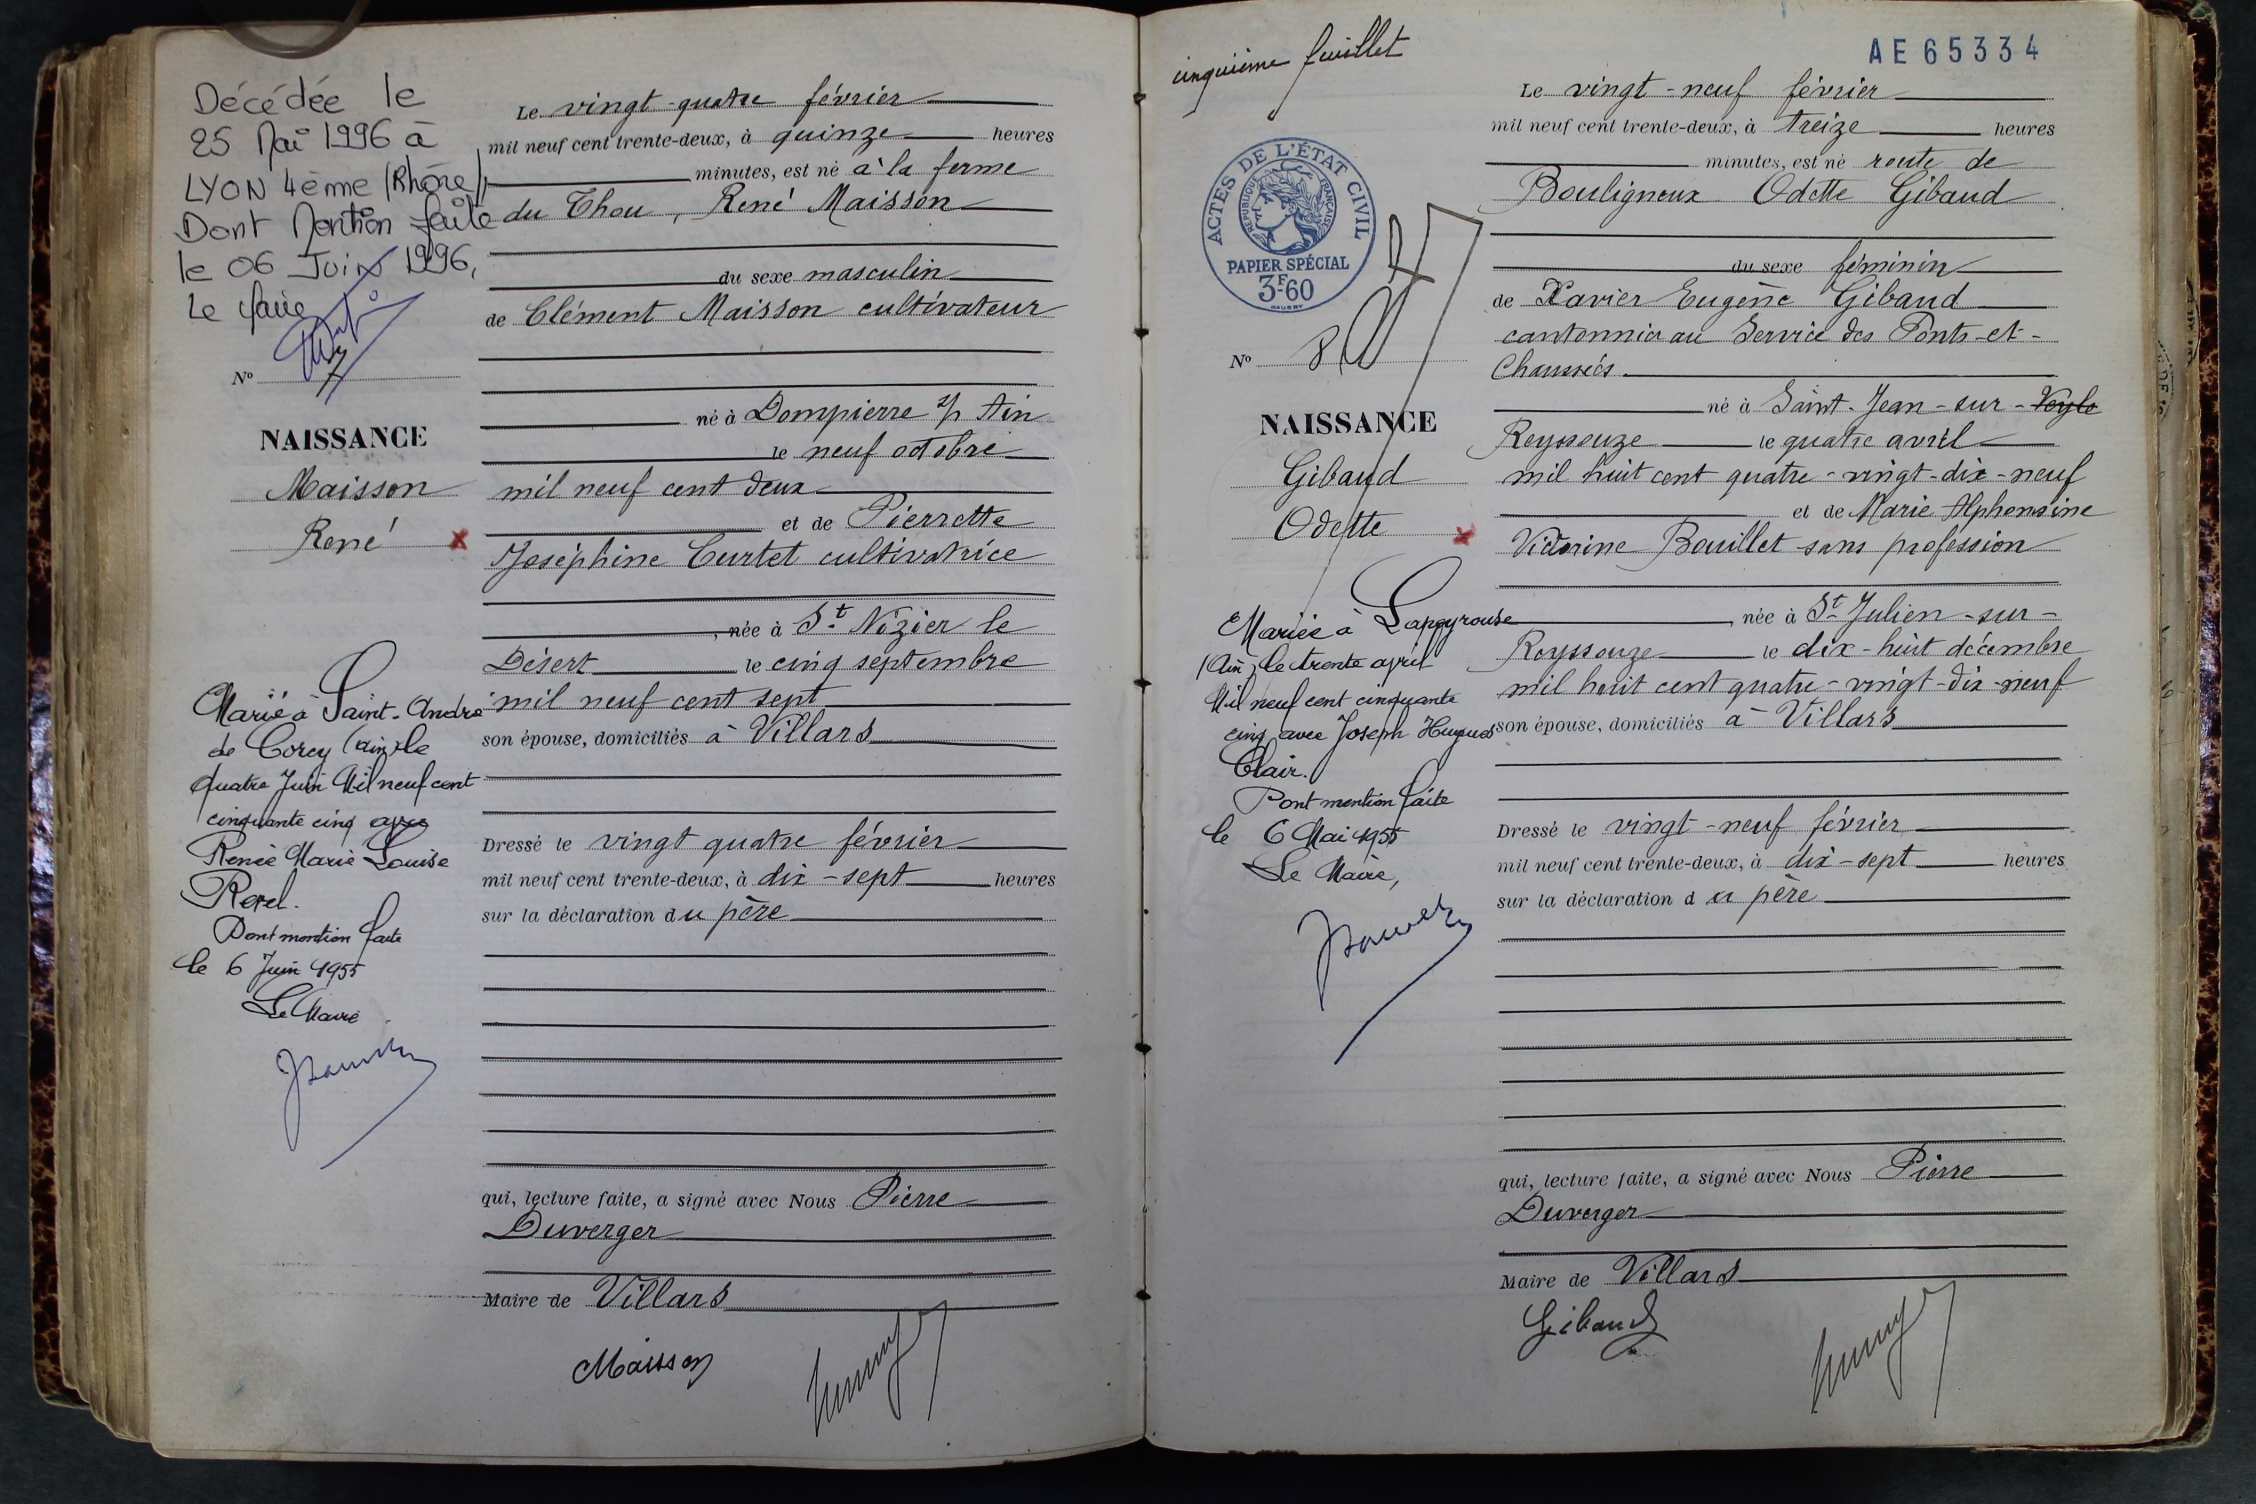 Décédée le
25 Mai 1996 à
LYON 4ème (Rhône),
Dont Mention faite
le 06 Juin 1996,
Le Maire
N° 7
NAISSANCE
Maisson
René
Marié à Saint-André
de Corcy (Ain) le
quatre Juin Mil neuf cent
cinquante cinq avec
Renée Marie Louise
Revel.
Dont mention faite
le 6 Juin 1955
Le Maire
Le vingt-quatre février
mil neuf cent trente-deux, à quinze heures
minutes, est né à la ferme
du Thou, René Maisson
du sexe masculin
de Clément Maisson cultivateur
né à Dompierre s/ Ain
le neuf octobre
mil neuf cent deux
et de Pierrette
Joséphine Curtet cultivatrice
, née à St Nizier le
Désert le cinq septembre
mil neuf cent sept
son épouse, domiciliés à Villars
Dressé le vingt quatre février
mil neuf cent trente-deux, à dix-sept heures
sur la déclaration du père
qui, lecture faite, a signé avec Nous Pierre
Duverger
Maire de Villars
Maisson
cinquième feuillet
AE65334
ACTES DE L'ÉTAT CIVIL
RÉPUBLIQUE FRANÇAISE
PAPIER SPÉCIAL
3F-60
N° 8
NAISSANCE
Gibaud
Odette
Mariée à Lapeyrouse
(Ain) le trente avril
Mil neuf cent cinquante
cinq avec Joseph Hugues
Clair.
Dont mention faite
le 6 Mai 1955
Le Maire,
Le vingt-neuf février
mil neuf cent trente-deux, à treize heures
minutes, est né route de
Bouligneux Odette Gibaud
du sexe féminin
de Xavier Eugène Gibaud
cantonnier au Service des Ponts-et-
Chaussées
né à Saint-Jean-sur-Veyle
Reyssouze le quatre avril
mil huit cent quatre-vingt-dix-neuf
et de Marie Alphonsine
Victorine Bouillet sans profession
née à St-Julien-sur-
Reyssouze le dix-huit décembre
mil huit cent quatre-vingt-dix-neuf
son épouse, domiciliés à Villars
Dressé le vingt-neuf février
mil neuf cent trente-deux, à dix-sept heures
sur la déclaration du père
qui, lecture faite, a signé avec Nous Pierre
Duverger
Maire de Villars
Gibaud